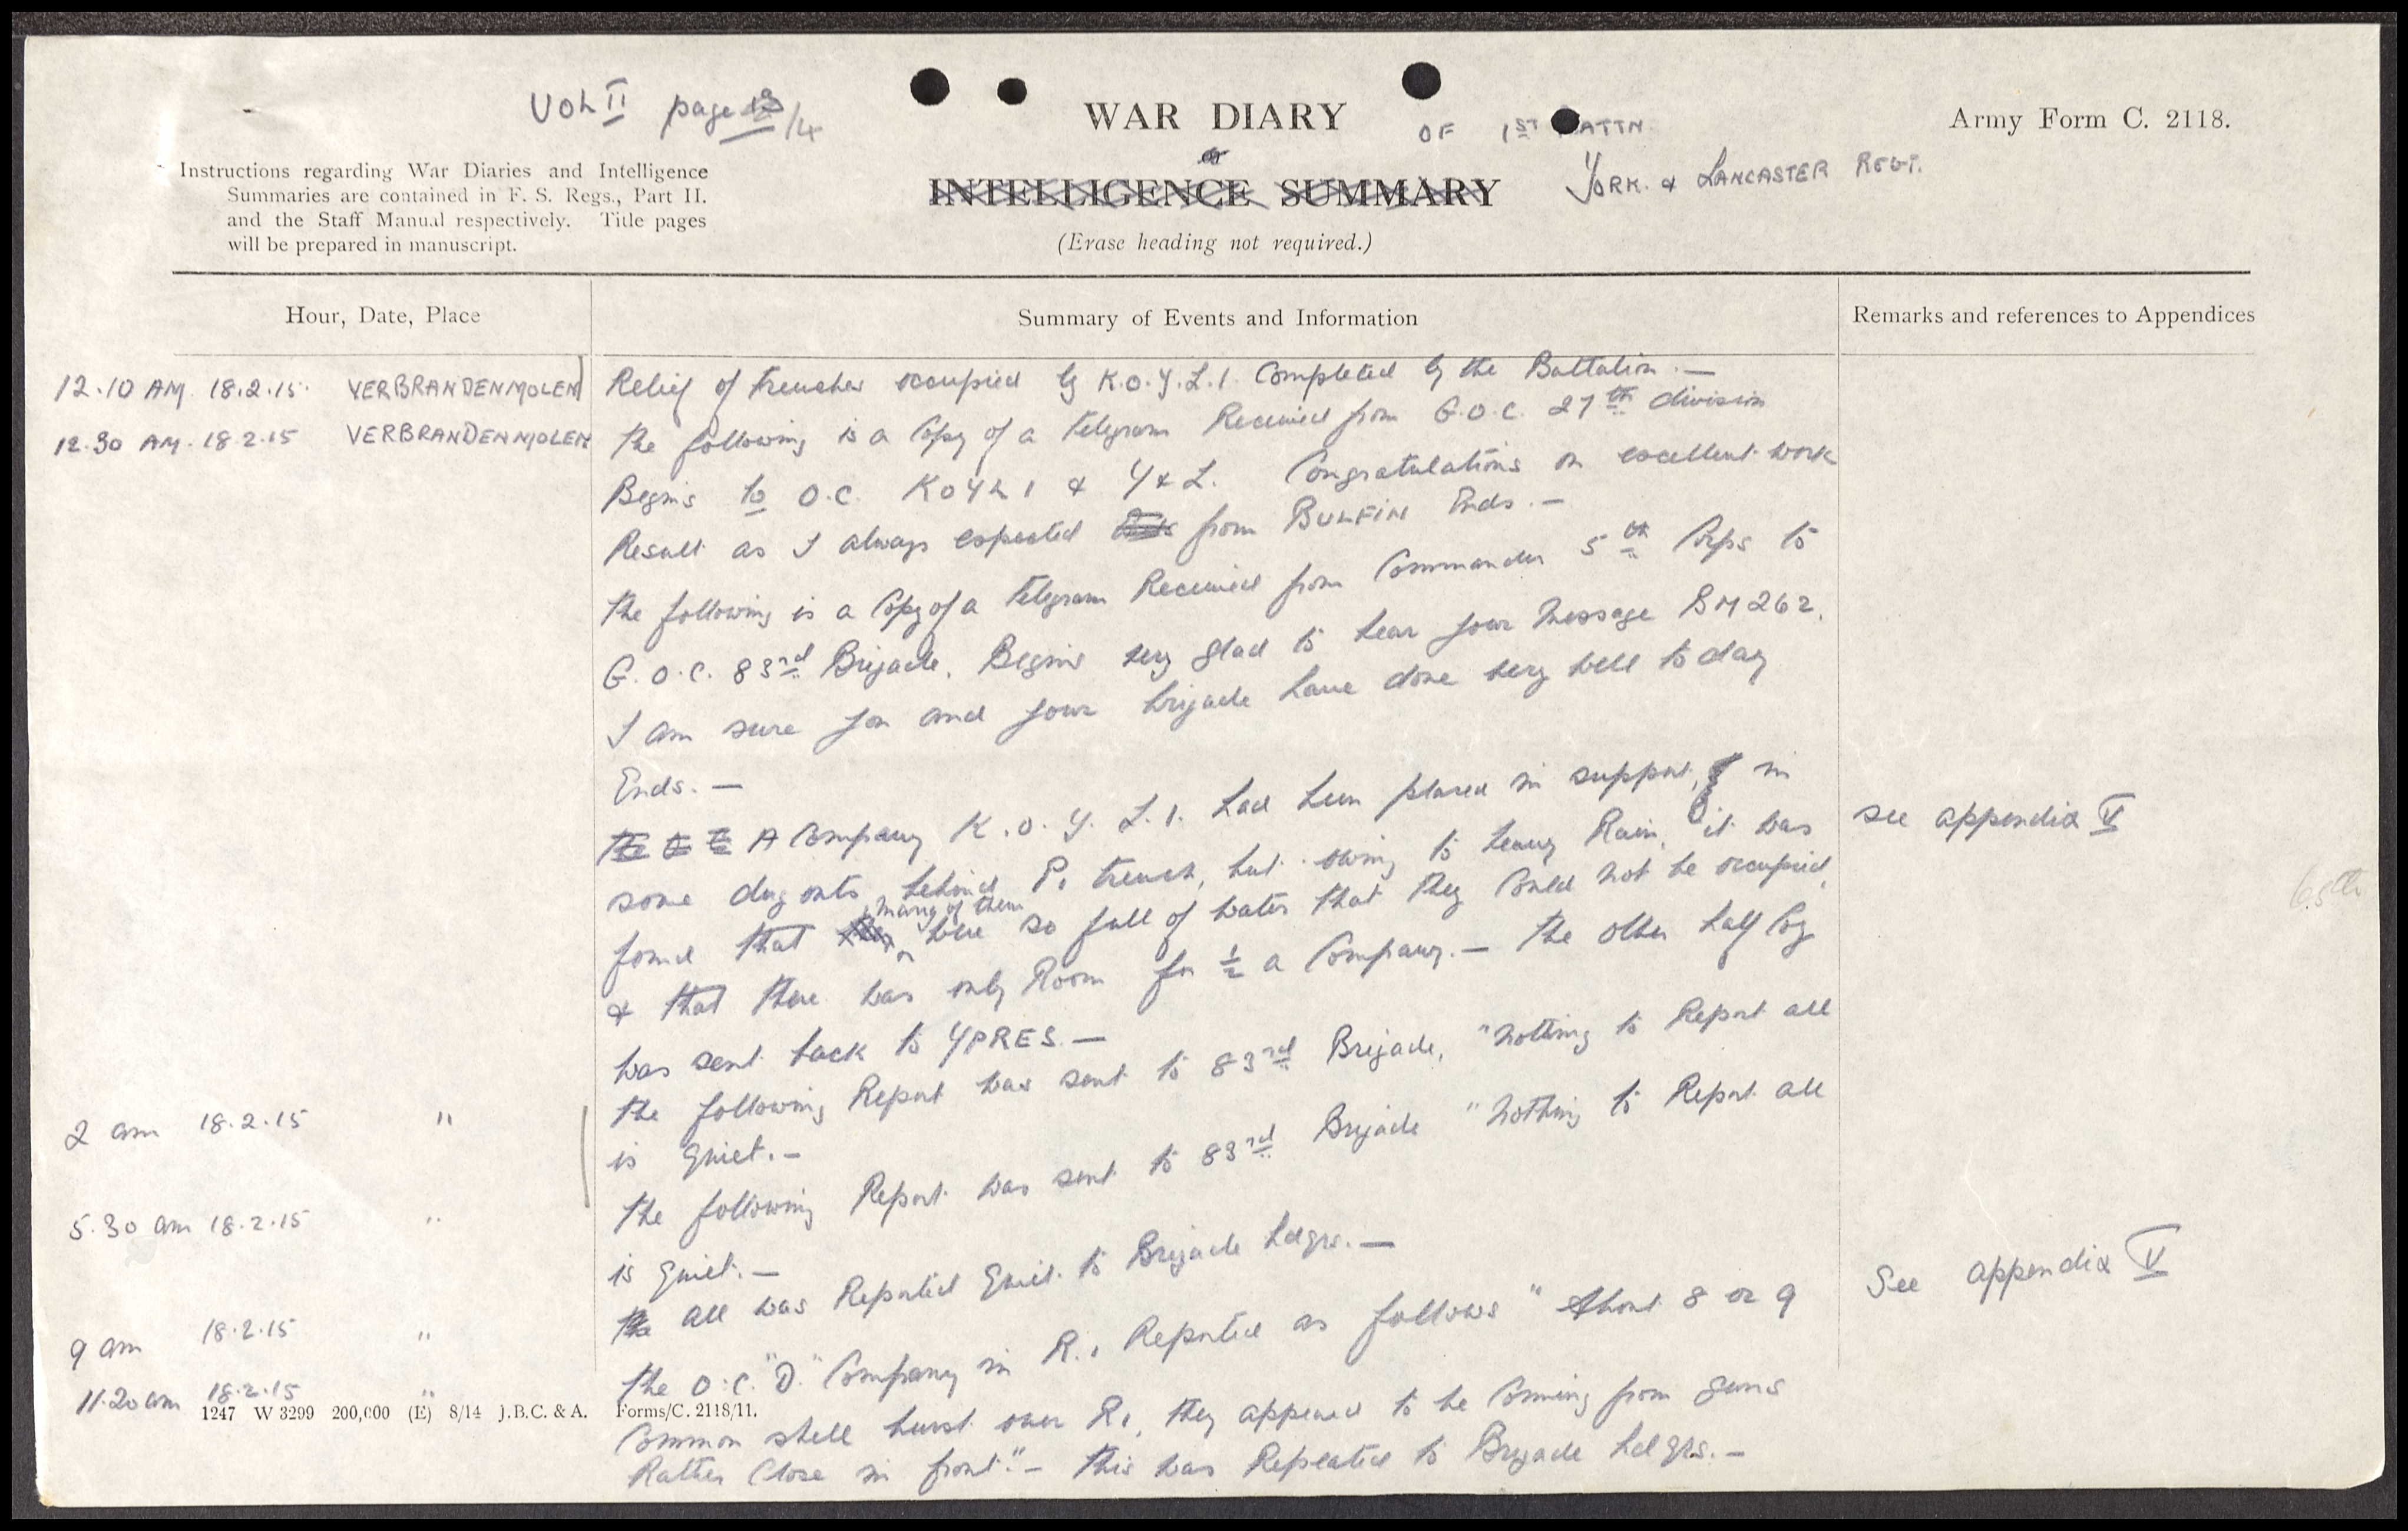 Vol II page 14
WAR DIARY OF 1ST BATTN
Army Form C. 2118.
or
INTELLIGENCE SUMMARY
YORK. & LANCASTER REGT.
(Erase heading not required.)
Instructions regarding War Diaries and Intelligence
Summaries are contained in F. S. Regs., Part II.
and the Staff Manual respectively. Title pages
will be prepared in manuscript.
Hour, Date, Place
Summary of Events and Information
Remarks and references to Appendices
12.10 AM. 18.2.15. VERBRANDENMOLEN Relief of trenches occupied by K.O.Y.L.I. Completed by the Battalion. —
12.30 AM. 18.2.15 VERBRANDENMOLEN The following is a Copy of a telegram Received from G.O.C. 27th division
Begins to O.C. KOYLI & Y&L. Congratulations on excellent work
Result as I always expected from BULFIN Ends. —
The following is a Copy of a telegram Received from Commander 5th Corps to
G.O.C. 83rd Brigade. Begins very glad to hear your message BM262.
I am sure you and your brigade have done very well today
Ends. —
A Company K.O.Y.L.I. had been placed in support, in see appendix V
some dug outs behind P1 trench, but owing to heavy Rain, it was
found that many of them were so full of water that they Could not be occupied,
& that there was only Room for ½ a Company. — The other half Coy
was sent back to YPRES. —
2 am 18.2.15 " The following Report was sent to 83rd Brigade, "Nothing to Report all
is quiet. —
5.30 am 18.2.15 " The following Report was sent to 83rd Brigade "Nothing to Report all
is quiet. —
9 am 18.2.15 " All was Reported Quiet to Brigade hdqrs. —
11.20 am 18.2.15 " The O.C. "D" Company in R1 Reported as follows "About 8 or 9 See appendix V
Common shell burst over R1, they appeared to be Coming from guns
Rather Close in front." — This was Repeated to Brigade hdqrs. —
65th
1247 W 3299 200,000 (E) 8/14 J.B.C. & A. Forms/C. 2118/11.